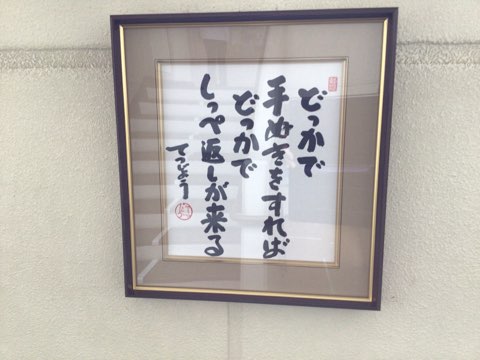 どっかで
手ぬきをすれば
どっかで
しっぺ返しが来る
てつどう